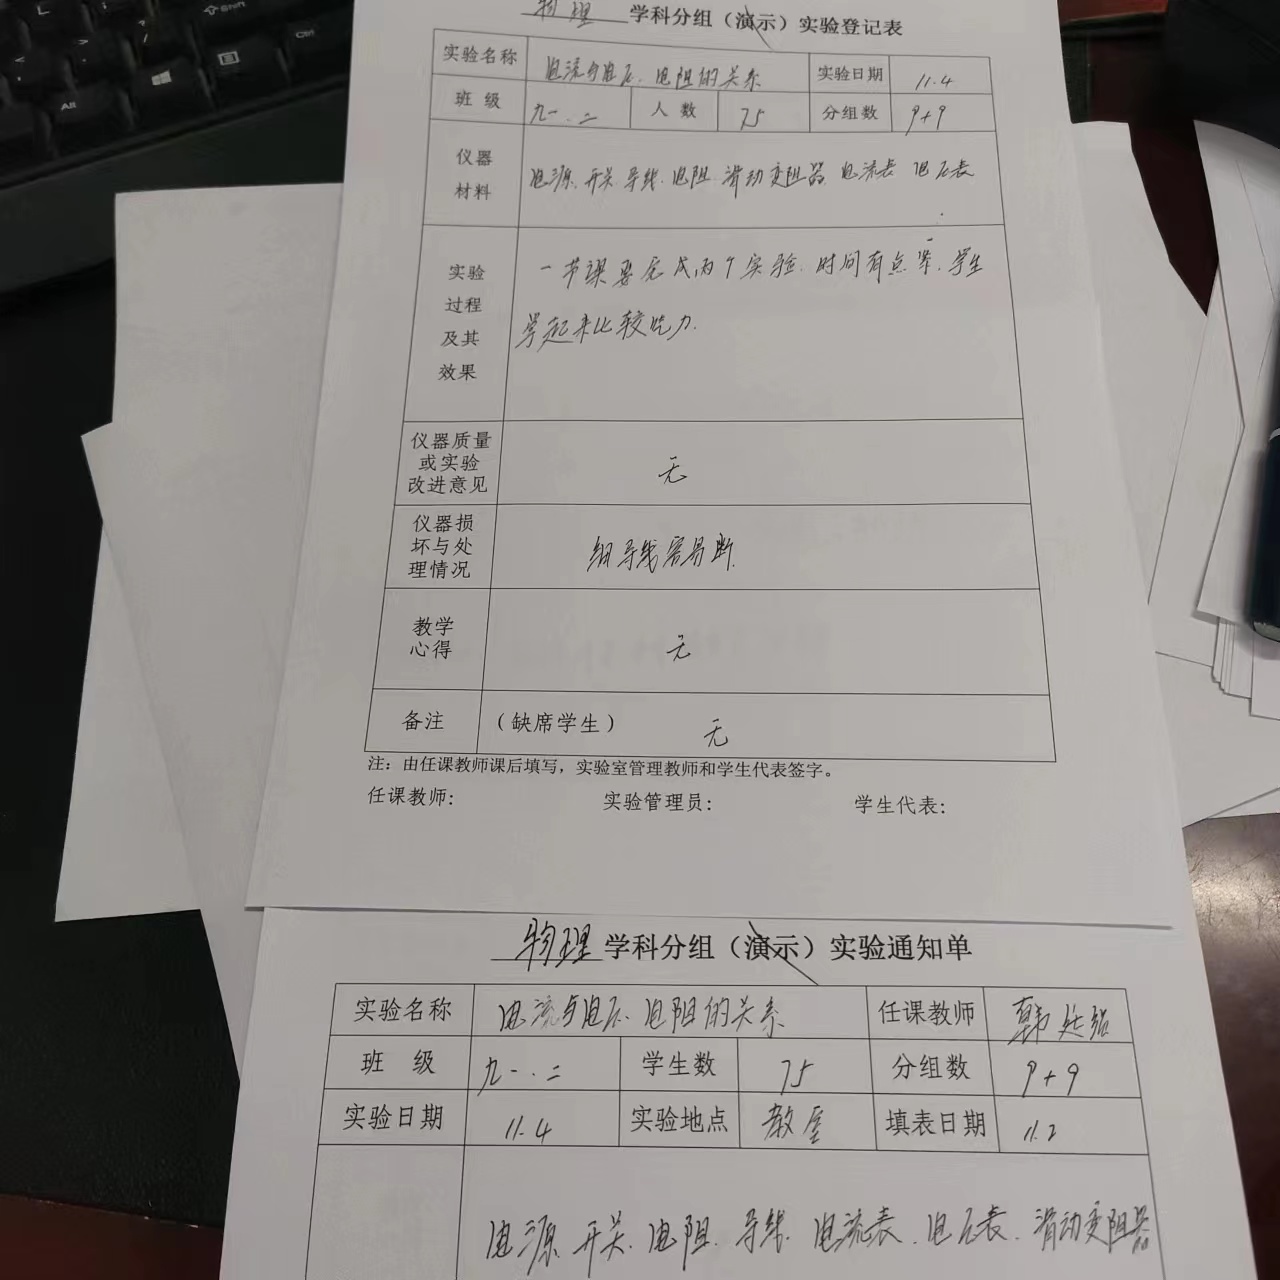 物理 学科分组（演示）实验登记表
实验名称 电流与电压、电阻的关系 实验日期 11.4
班 级 九一.二 人 数 75 分组数 9+9
仪器材料 电源、开关、导线、电阻、滑动变阻器、电流表 电压表
实验过程及其效果 一节课要完成两个实验.时间有点紧.学生
学起来比较吃力.
仪器质量或实验改进意见 无
仪器损坏与处理情况 细导线容易断.
教学心得 无
备注 （缺席学生） 无
注：由任课教师课后填写，实验室管理教师和学生代表签字。
任课教师： 实验管理员： 学生代表：
物理 学科分组（演示）实验通知单
实验名称 电流与电压、电阻的关系 任课教师 韩
班 级 九一.二 学生数 75 分组数 9+9
实验日期 11.4 实验地点 教室 填表日期 11.2
电源、开关、电阻、导线、电流表、电压表、滑动变阻器
Shift
Alt
Ctrl